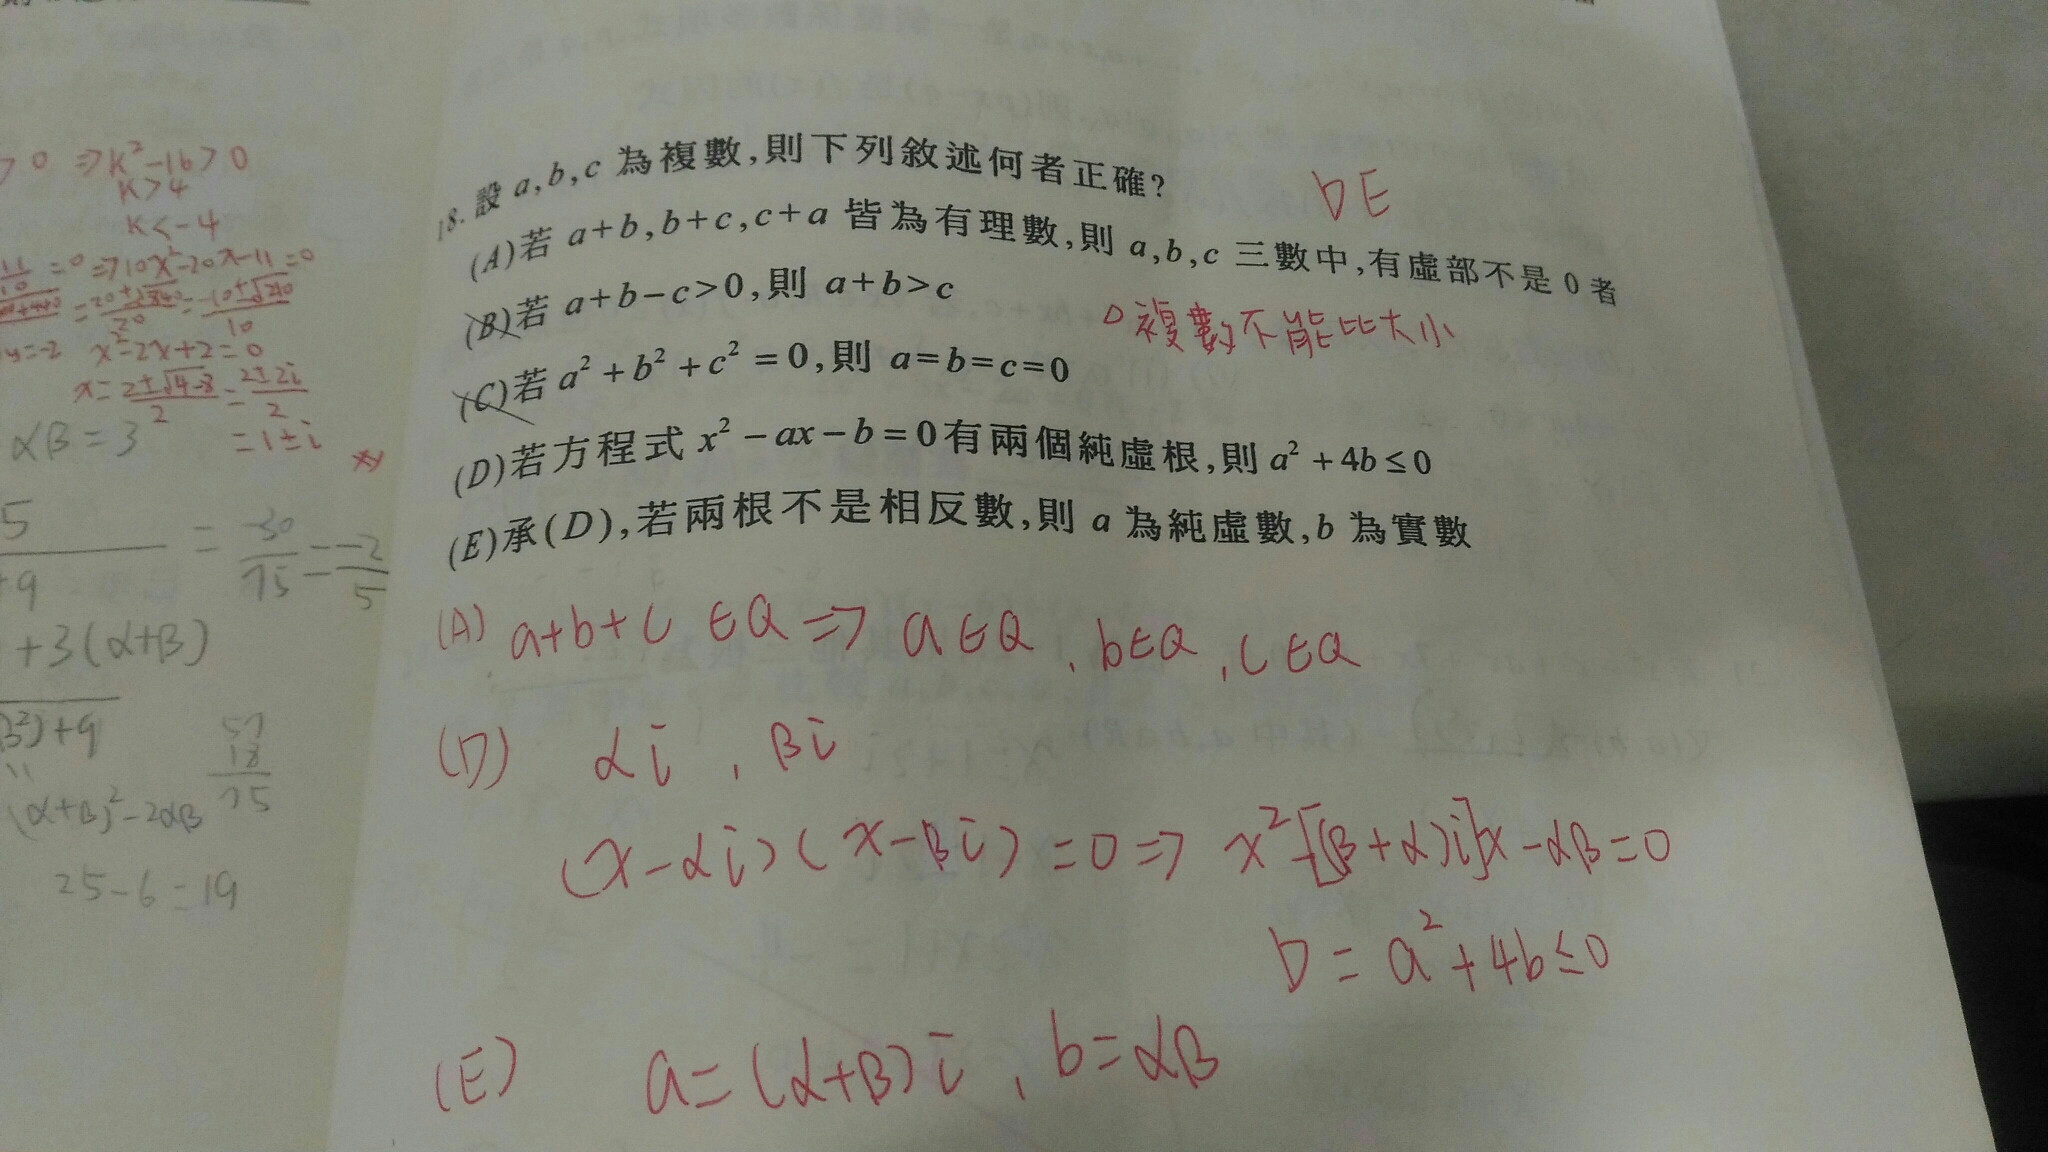 > 0 ⇒ K² - 16 > 0
K > 4
K < -4
= 0 ⇒ 10x² - 20x - 11 = 0
y = -2 x² - 2x + 2 = 0
x = 2±√4-8 / 2 = 2±2i / 2
= 1±i
αβ = 3
5 / +9 = -30 / 75 = -2 / 5
+3(α+β)
β²)+9
57
18
75
(α+β)² - 2αβ
25 - 6 = 19
18. 設 a, b, c 為複數, 則下列敘述何者正確?
DE
(A)若 a+b, b+c, c+a 皆為有理數, 則 a, b, c 三數中, 有虛部不是 0 者
(B)若 a+b-c>0, 則 a+b>c
複數不能比大小
(C)若 a²+b²+c²=0, 則 a=b=c=0
(D)若方程式 x²-ax-b=0有兩個純虛根, 則 a²+4b≤0
(E)承(D), 若兩根不是相反數, 則 a 為純虛數, b 為實數
(A) a+b+c ∈Q ⇒ a∈Q, b∈Q, c∈Q
(D) αi, βi
(x-αi)(x-βi)=0 ⇒ x²-[(β+α)i]x-αβ=0
D = a²+4b≤0
(E) a=(α+β)i, b=αβ